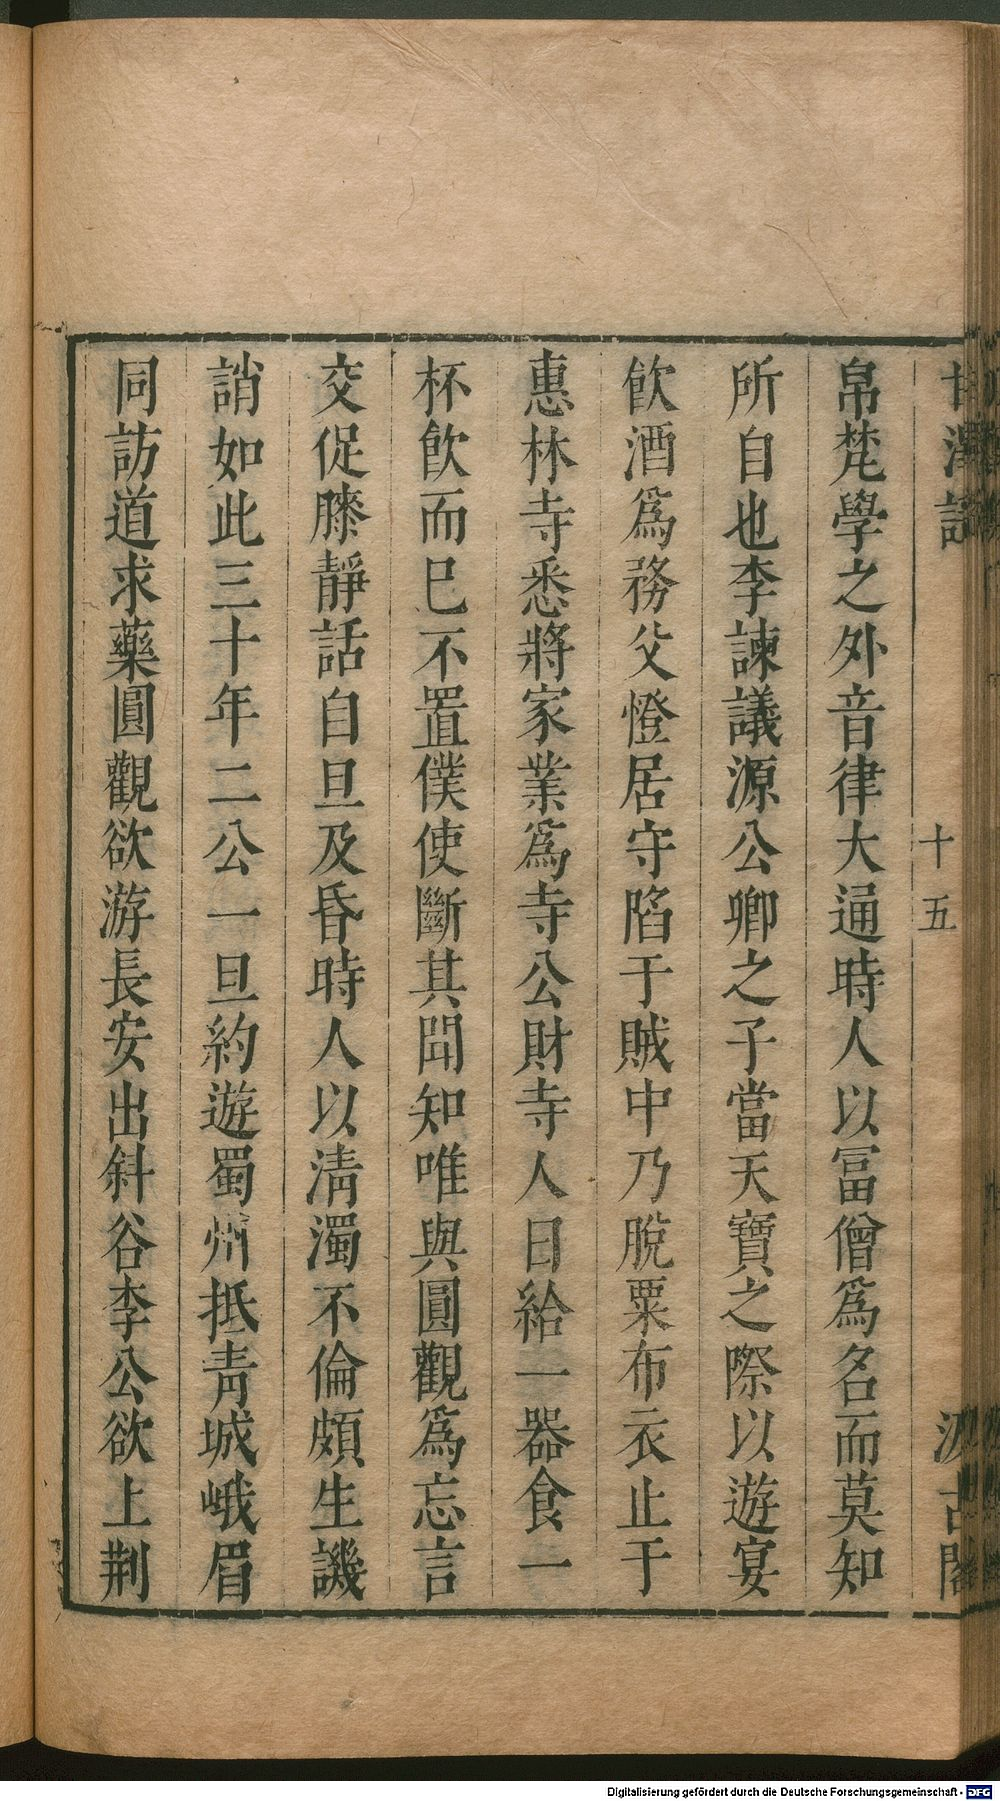 甘澤謠 十五 汲古閣
帛梵學之外音律大通時人以冨僧爲名而莫知
所自也李諫議源公卿之子當天寶之際以遊宴
飮酒爲務父憕居守陷于賊中乃脫粟布衣止于
惠林寺悉將家業爲寺公財寺人日給一器食一
杯飮而巳不置僕使斷其聞知唯與圓觀爲忘言
交促膝靜話自旦及昏時人以淸濁不倫頗生譏
誚如此三十年二公一旦約遊蜀州抵靑城峨眉
同訪道求藥圓觀欲游長安出斜谷李公欲上荆
Digitalisierung gefördert durch die Deutsche Forschungsgemeinschaft - DFG